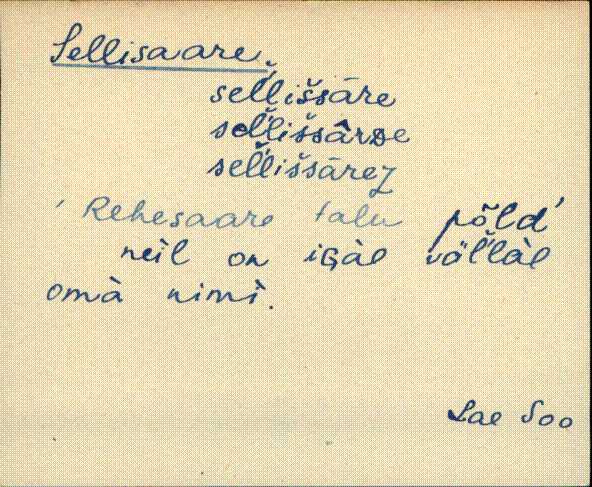 Sellisaare,
sel̆lišsāre
sel̆lišsârᴅe
sel̆lišsārez
'Rehesaare talu põld'
neil on iɢàl väl̆làl
omà nimì.
Lae Soo